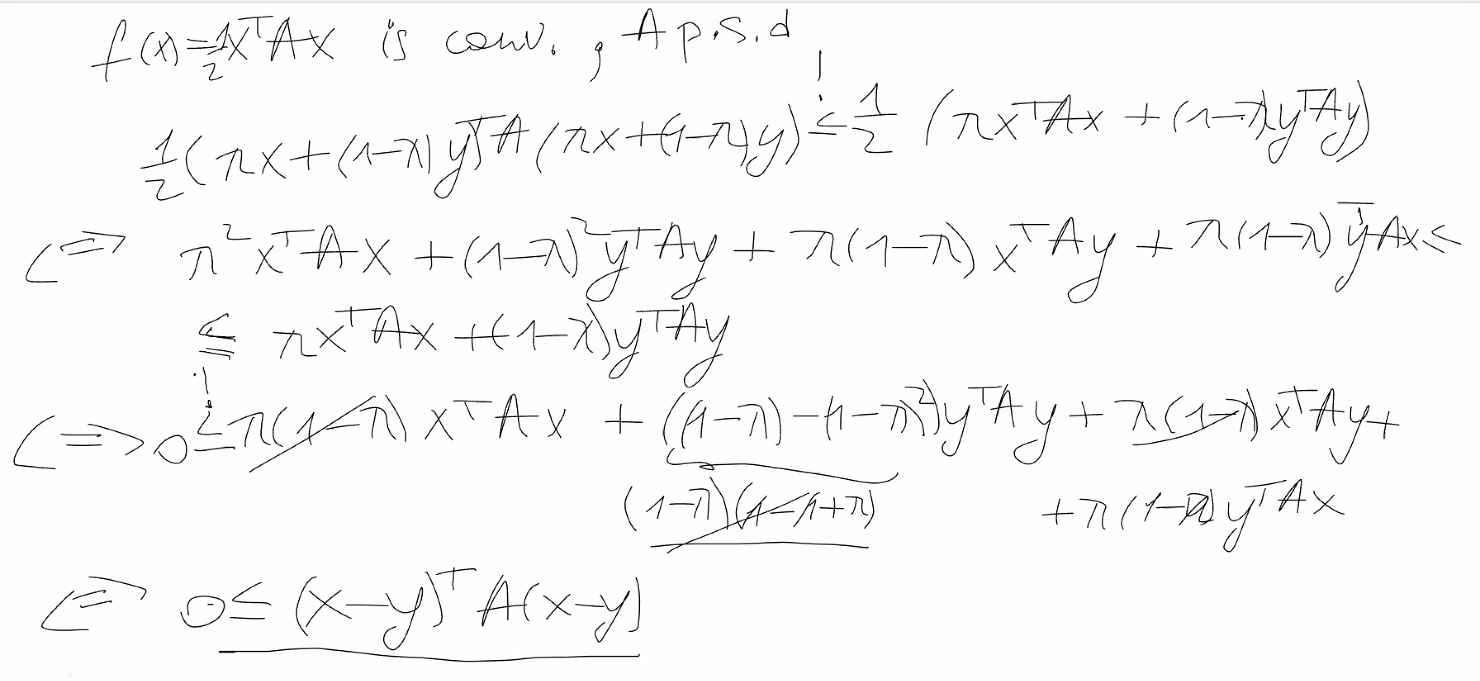 f(x)=½xᵀAx is conv. , A p.s.d
½(λx+(1-λ)y)ᵀA(λx+(1-λ)y) ≤! ½(λxᵀAx+(1-λ)yᵀAy)
⟺ λ²xᵀAx+(1-λ)²yᵀAy+λ(1-λ)xᵀAy+λ(1-λ)yᵀAx≤
≤ λxᵀAx+(1-λ)yᵀAy
⟺ 0 ≤! λ(1-λ)xᵀAx+((1-λ)-(1-λ)²)yᵀAy+λ(1-λ)xᵀAy+
(1-λ)(1-1+λ) +λ(1-λ)yᵀAx
⟺ 0≤(x-y)ᵀA(x-y)